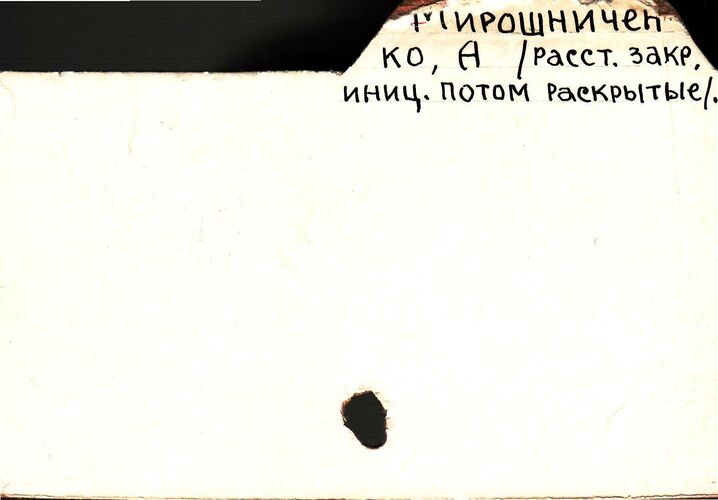 Мирошничен
ко, А /расст. закр.
иниц. потом раскрытые/.